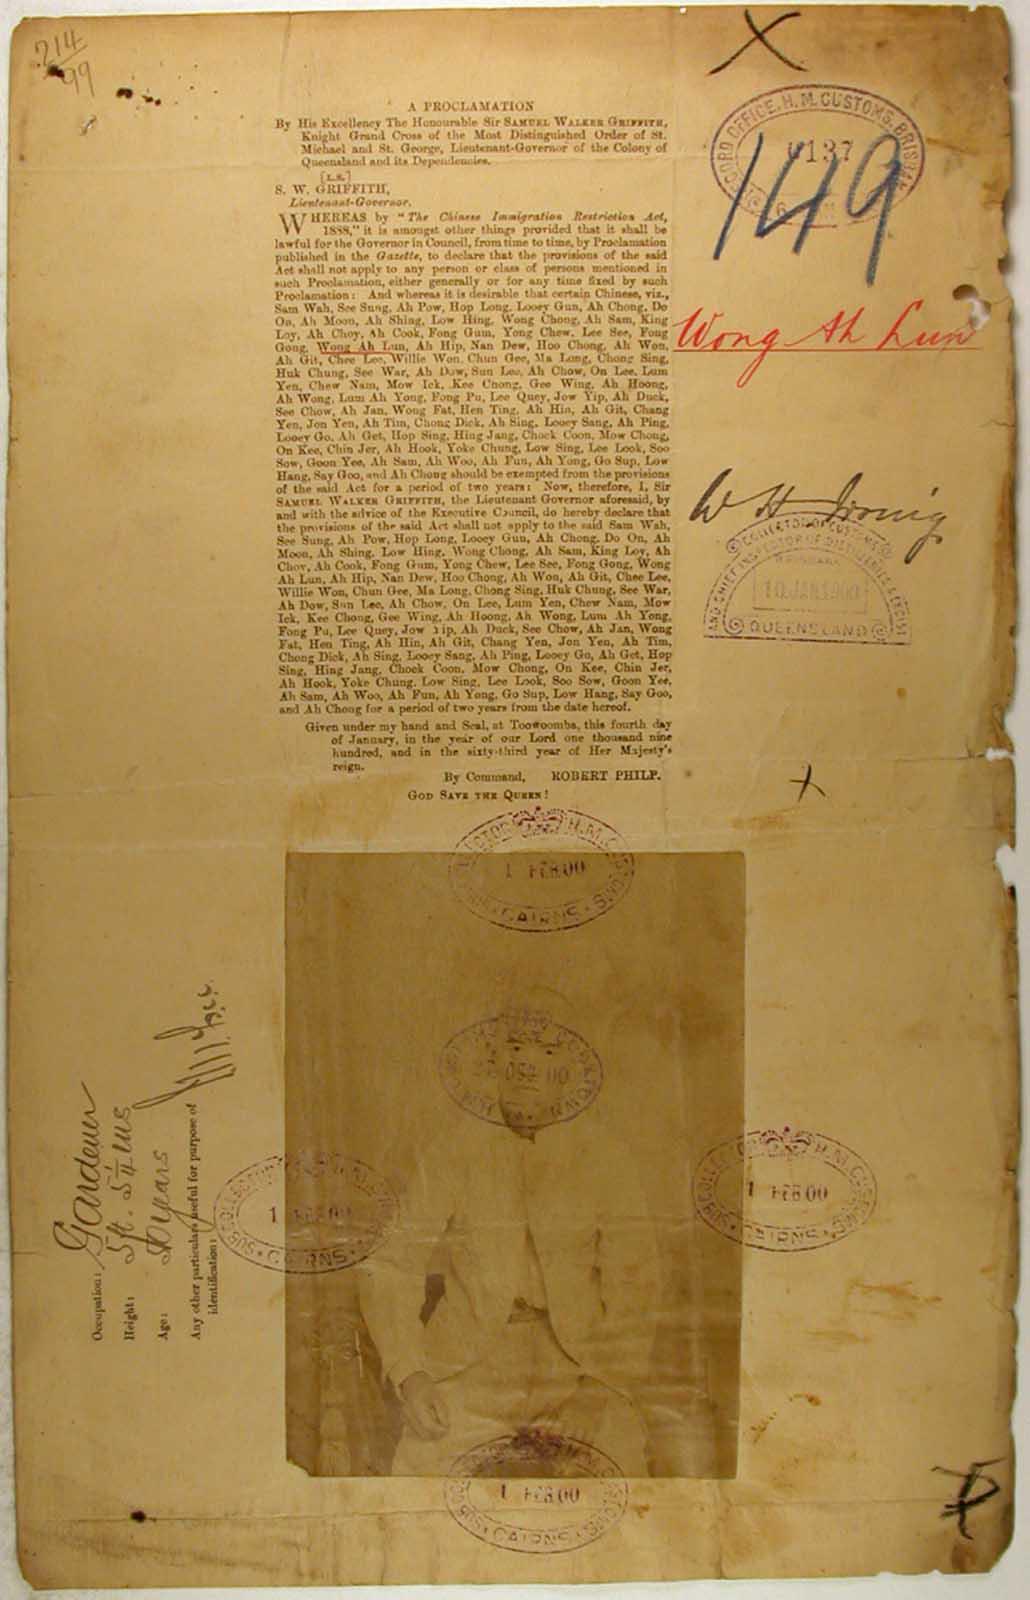 214
99
A PROCLAMATION
By His Excellency The Honourable Sir SAMUEL WALKER GRIFFITH,
Knight Grand Cross of the Most Distinguished Order of St.
Michael and St. George, Lieutenant-Governor of the Colony of
Queensland and its Dependencies.
[L.S.]
S. W. GRIFFITH,
Lieutenant-Governor.
WHEREAS by "The Chinese Immigration Restriction Act,
1888," it is amongst other things provided that it shall be
lawful for the Governor in Council, from time to time, by Proclamation
published in the Gazette, to declare that the provisions of the said
Act shall not apply to any person or class of persons mentioned in
such Proclamation, either generally or for any time fixed by such
Proclamation: And whereas it is desirable that certain Chinese, viz.,
Sam Wah, See Sung, Ah Pow, Hop Long, Looey Gun, Ah Chong, Do
On, Ah Moon, Ah Shing, Low Hing, Wong Chong, Ah Sam, King
Loy, Ah Choy, Ah Cook, Fong Gum, Yong Chew, Lee See, Fong
Gong, Wong Ah Lun, Ah Hip, Nan Dew, Hoo Chong, Ah Won,
Ah Git, Chee Lee, Willie Won, Chun Gee, Ma Long, Chong Sing,
Huk Chung, See War, Ah Dow, Sun Lee, Ah Chow, On Lee, Lum
Yen, Chew Nam, Mow Ick, Kee Chong, Gee Wing, Ah Hoong,
Ah Wong, Lum Ah Yong, Fong Pu, Lee Quey, Jow Yip, Ah Duck,
See Chow, Ah Jan, Wong Fat, Hen Ting, Ah Hin, Ah Git, Chang
Yen, Jon Yen, Ah Tim, Chong Dick, Ah Sing, Looey Sang, Ah Ping,
Looey Go, Ah Get, Hop Sing, Hing Jang, Chock Coon, Mow Chong,
On Kee, Chin Jer, Ah Hook, Yoke Chung, Low Sing, Lee Look, Soo
Sow, Goon Yee, Ah Sam, Ah Woo, Ah Fun, Ah Yong, Go Sup, Low
Hang, Say Goo, and Ah Chong should be exempted from the provisions
of the said Act for a period of two years: Now, therefore, I, Sir
SAMUEL WALKER GRIFFITH, the Lieutenant Governor aforesaid, by
and with the advice of the Executive Council, do hereby declare that
the provisions of the said Act shall not apply to the said Sam Wah,
See Sung, Ah Pow, Hop Long, Looey Gun, Ah Chong, Do On, Ah
Moon, Ah Shing, Low Hing, Wong Chong, Ah Sam, King Loy, Ah
Choy, Ah Cook, Fong Gum, Yong Chew, Lee See, Fong Gong, Wong
Ah Lun, Ah Hip, Nan Dew, Hoo Chong, Ah Won, Ah Git, Chee Lee,
Willie Won, Chun Gee, Ma Long, Chong Sing, Huk Chung, See War,
Ah Dow, Sun Lee, Ah Chow, On Lee, Lum Yen, Chew Nam, Mow
Ick, Kee Chong, Gee Wing, Ah Hoong, Ah Wong, Lum Ah Yong,
Fong Pu, Lee Quey, Jow Yip, Ah Duck, See Chow, Ah Jan, Wong
Fat, Hen Ting, Ah Hin, Ah Git, Chang Yen, Jon Yen, Ah Tim,
Chong Dick, Ah Sing, Looey Sang, Ah Ping, Looey Go, Ah Get, Hop
Sing, Hing Jang, Chock Coon, Mow Chong, On Kee, Chin Jer,
Ah Hook, Yoke Chung, Low Sing, Lee Look, Soo Sow, Goon Yee,
Ah Sam, Ah Woo, Ah Fun, Ah Yong, Go Sup, Low Hang, Say Goo,
and Ah Chong for a period of two years from the date hereof.
Given under my hand and Seal, at Toowoomba, this fourth day
of January, in the year of our Lord one thousand nine
hundred, and in the sixty-third year of Her Majesty's
reign.
By Command, ROBERT PHILP.
GOD SAVE THE QUEEN!
RECORD OFFICE. H. M. CUSTOMS. BRISBANE
0137
149
Wong Ah Lun
W H Irving
COLLECTOR OF CUSTOMS
AND CHIEF INSPECTOR OF DISTILLERIES & EXCISE
BRISBANE
10. JAN. 1900
QUEENSLAND
SUB COLLECTOR H. M. CUSTOMS
1 FEB. 00
CAIRNS
COOKTOWN
00
SUB COLLECTOR H. M. CUSTOMS
1 FEB. 00
CAIRNS
SUB COLLECTOR H. M. CUSTOMS
1 FEB. 00
CAIRNS
SUB COLLECTOR H. M. CUSTOMS
1 FEB. 00
CAIRNS
Occupation: Gardener
Height: 5ft. 5 1/4 ins
Age: years
Any other particulars useful for purpose of
identification: